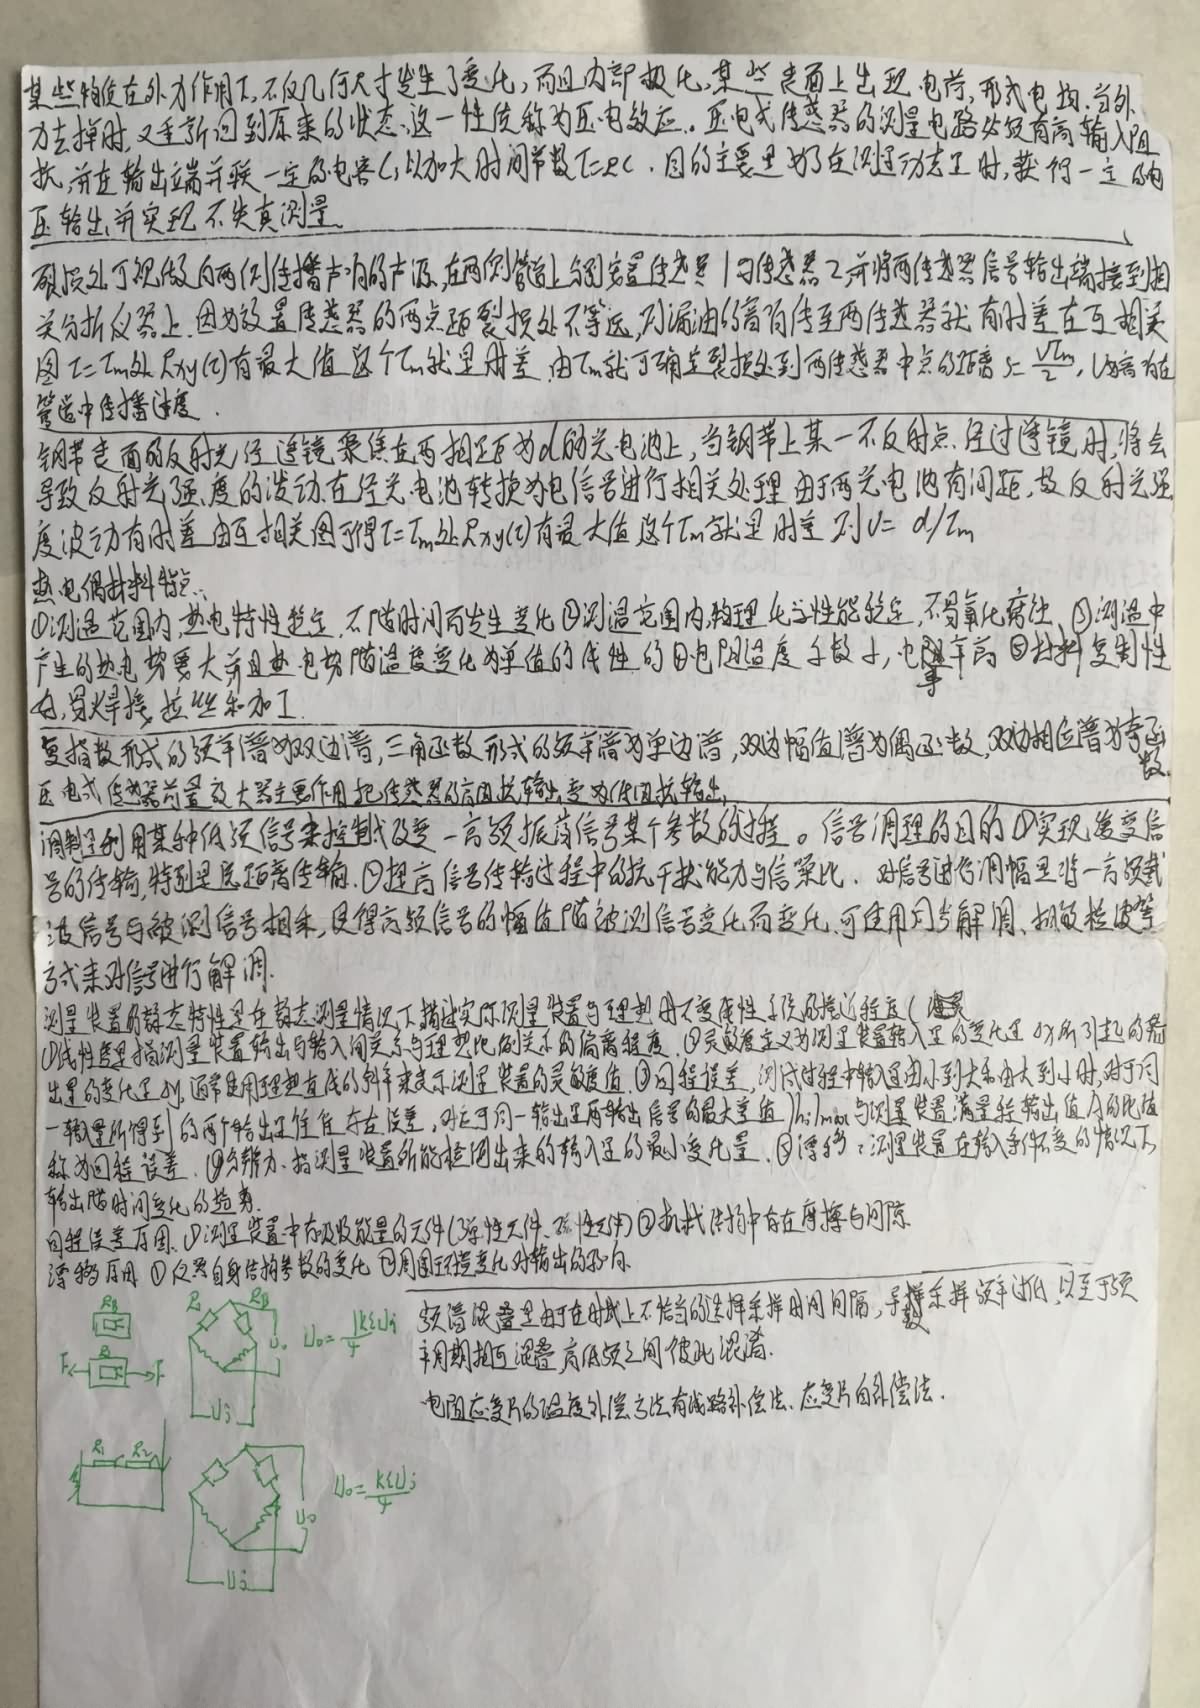 某些物质在外力作用下,不仅几何尺寸发生了变化,而且内部极化,某些表面上出现电荷,形式电场.当外
力去掉时,又重新回到原来的状态.这一性质称为压电效应.压电式传感器的测量电路必须有高输入阻
抗,并在输出端并联一定的电容C,以加大时间常数T=RC.目的主要是为了在测运动去工时,获得一定的电
压输出,并实现不失真测量.
破损处可视做向两侧传播声响的声源,在两侧管道上分别安置传感器1与传感器2,并将两传感器信号输出端接到相
关分析仪器上.因为放置传感器的两点距裂损处不等远,则漏油的音响传至两传感器就有时差在互相关
图τ=τm处Rxy(τ)有最大值这个τm就是时差.由τm就可确定裂损处到两传感器中点的距离S=Vτm/2,V为音在
管道中传播速度.
钢带表面的反射光经透镜聚焦在两相距为d的光电池上,当钢带上某一不反射点经过透镜时,将会
导致反射光强度的波动在经光电池转换为电信号进行相关处理由于两光电池有间距,故反射光强
度波动有时差由互相关图可得τ=τm处Rxy(τ)有最大值这个τm就是时差则V=d/τm
热电偶材料特点:
①测温范围内,热电特性稳定,不随时间而发生变化②测温范围内,物理化学性能稳定,不易氧化腐蚀,③测温中
产生的热电势要大并且热电势随温度变化为单值的线性的④电阻温度系数小,电导率高⑤材料复制性
好,易焊接,拉丝和加工
复指数形式的频率谱为双边谱,三角函数形式的频率谱为单边谱,双边幅值谱为偶函数,双边相位谱为奇函
数.
压电式传感器前置放大器主要作用把传感器的高阻抗输出变为低阻抗输出,
调制是利用某种低频信号来控制或改变一高频振荡信号某个参数的过程。信号调理的目的①实现缓变信
号的传输,特别是远距离传输.②提高信号传输过程中的抗干扰能力与信噪比.对信号进行调幅是将一高频载
波信号与被测信号相乘,使得高频信号的幅值随被测信号变化而变化.可使用同步解调、相敏检波等
方式来对信号进行解调.
测量装置的静态特性是在静态测量情况下描述实际测量装置与理想时不变线性系统的接近程度(
①线性度是指测量装置输出与输入间关系与理想比例关系的偏离程度.②灵敏度定义为测量装置输入量的变化量Δx所引起的输
出量的变化量Δy,通常使用理想直线的斜率来表示测量装置的灵敏度值③回程误差,测试过程中输入量由小到大和由大到小时,对于同
一输入量所得到的两个输出量往往存在误差,对应于同一输出量两输出信号的最大差值|hi|max与测量装置满量程输出值A的比值
称为回程误差.④分辨力:指测量装置所能检测出来的输入量的最小变化量.⑤漂移:测量装置在输入条件不变的情况下
输出随时间变化的趋势.
回程误差原因.①测量装置中有吸收能量的元件(弹性元件、磁性元件)②机械结构中存在摩擦与间隙
漂移原因①仪器自身结构参数的变化②周围环境变化对输出的影响.
频谱混叠是由于在时域上不恰当的选择采样时间间隔,导致采样频率过低,以至于频
率周期相互混叠,高低频之间彼此混淆.
电阻应变片的温度补偿方法有线路补偿法、应变片自补偿法.
RB
R1
F
F
R1
RB
U0
Ui
U0=KεUi/4
R1
R2
U0
Ui
U0=KεUi/4